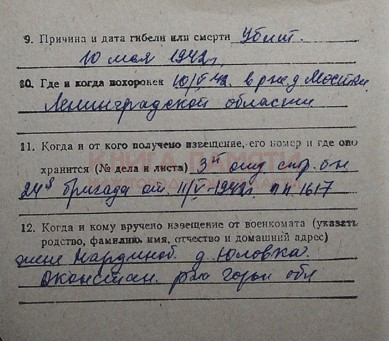 9. Причина и дата гибели или смерти Убит.
10 мая 1942г.
10. Где и когда похоронен 10/V 42. в р-не д.
Ленинградской области
11. Когда и от кого получено извещение, его номер и где оно
хранится (№ дела и листа) 3й отд стр. б-он
24й бригада от 11/V-1942г. пп 1617
12. Когда и кому вручено извещение от военкомата (указать
родство, фамилию, имя, отчество и домашний адрес)
жене д. Юловка
р-на горьк обл